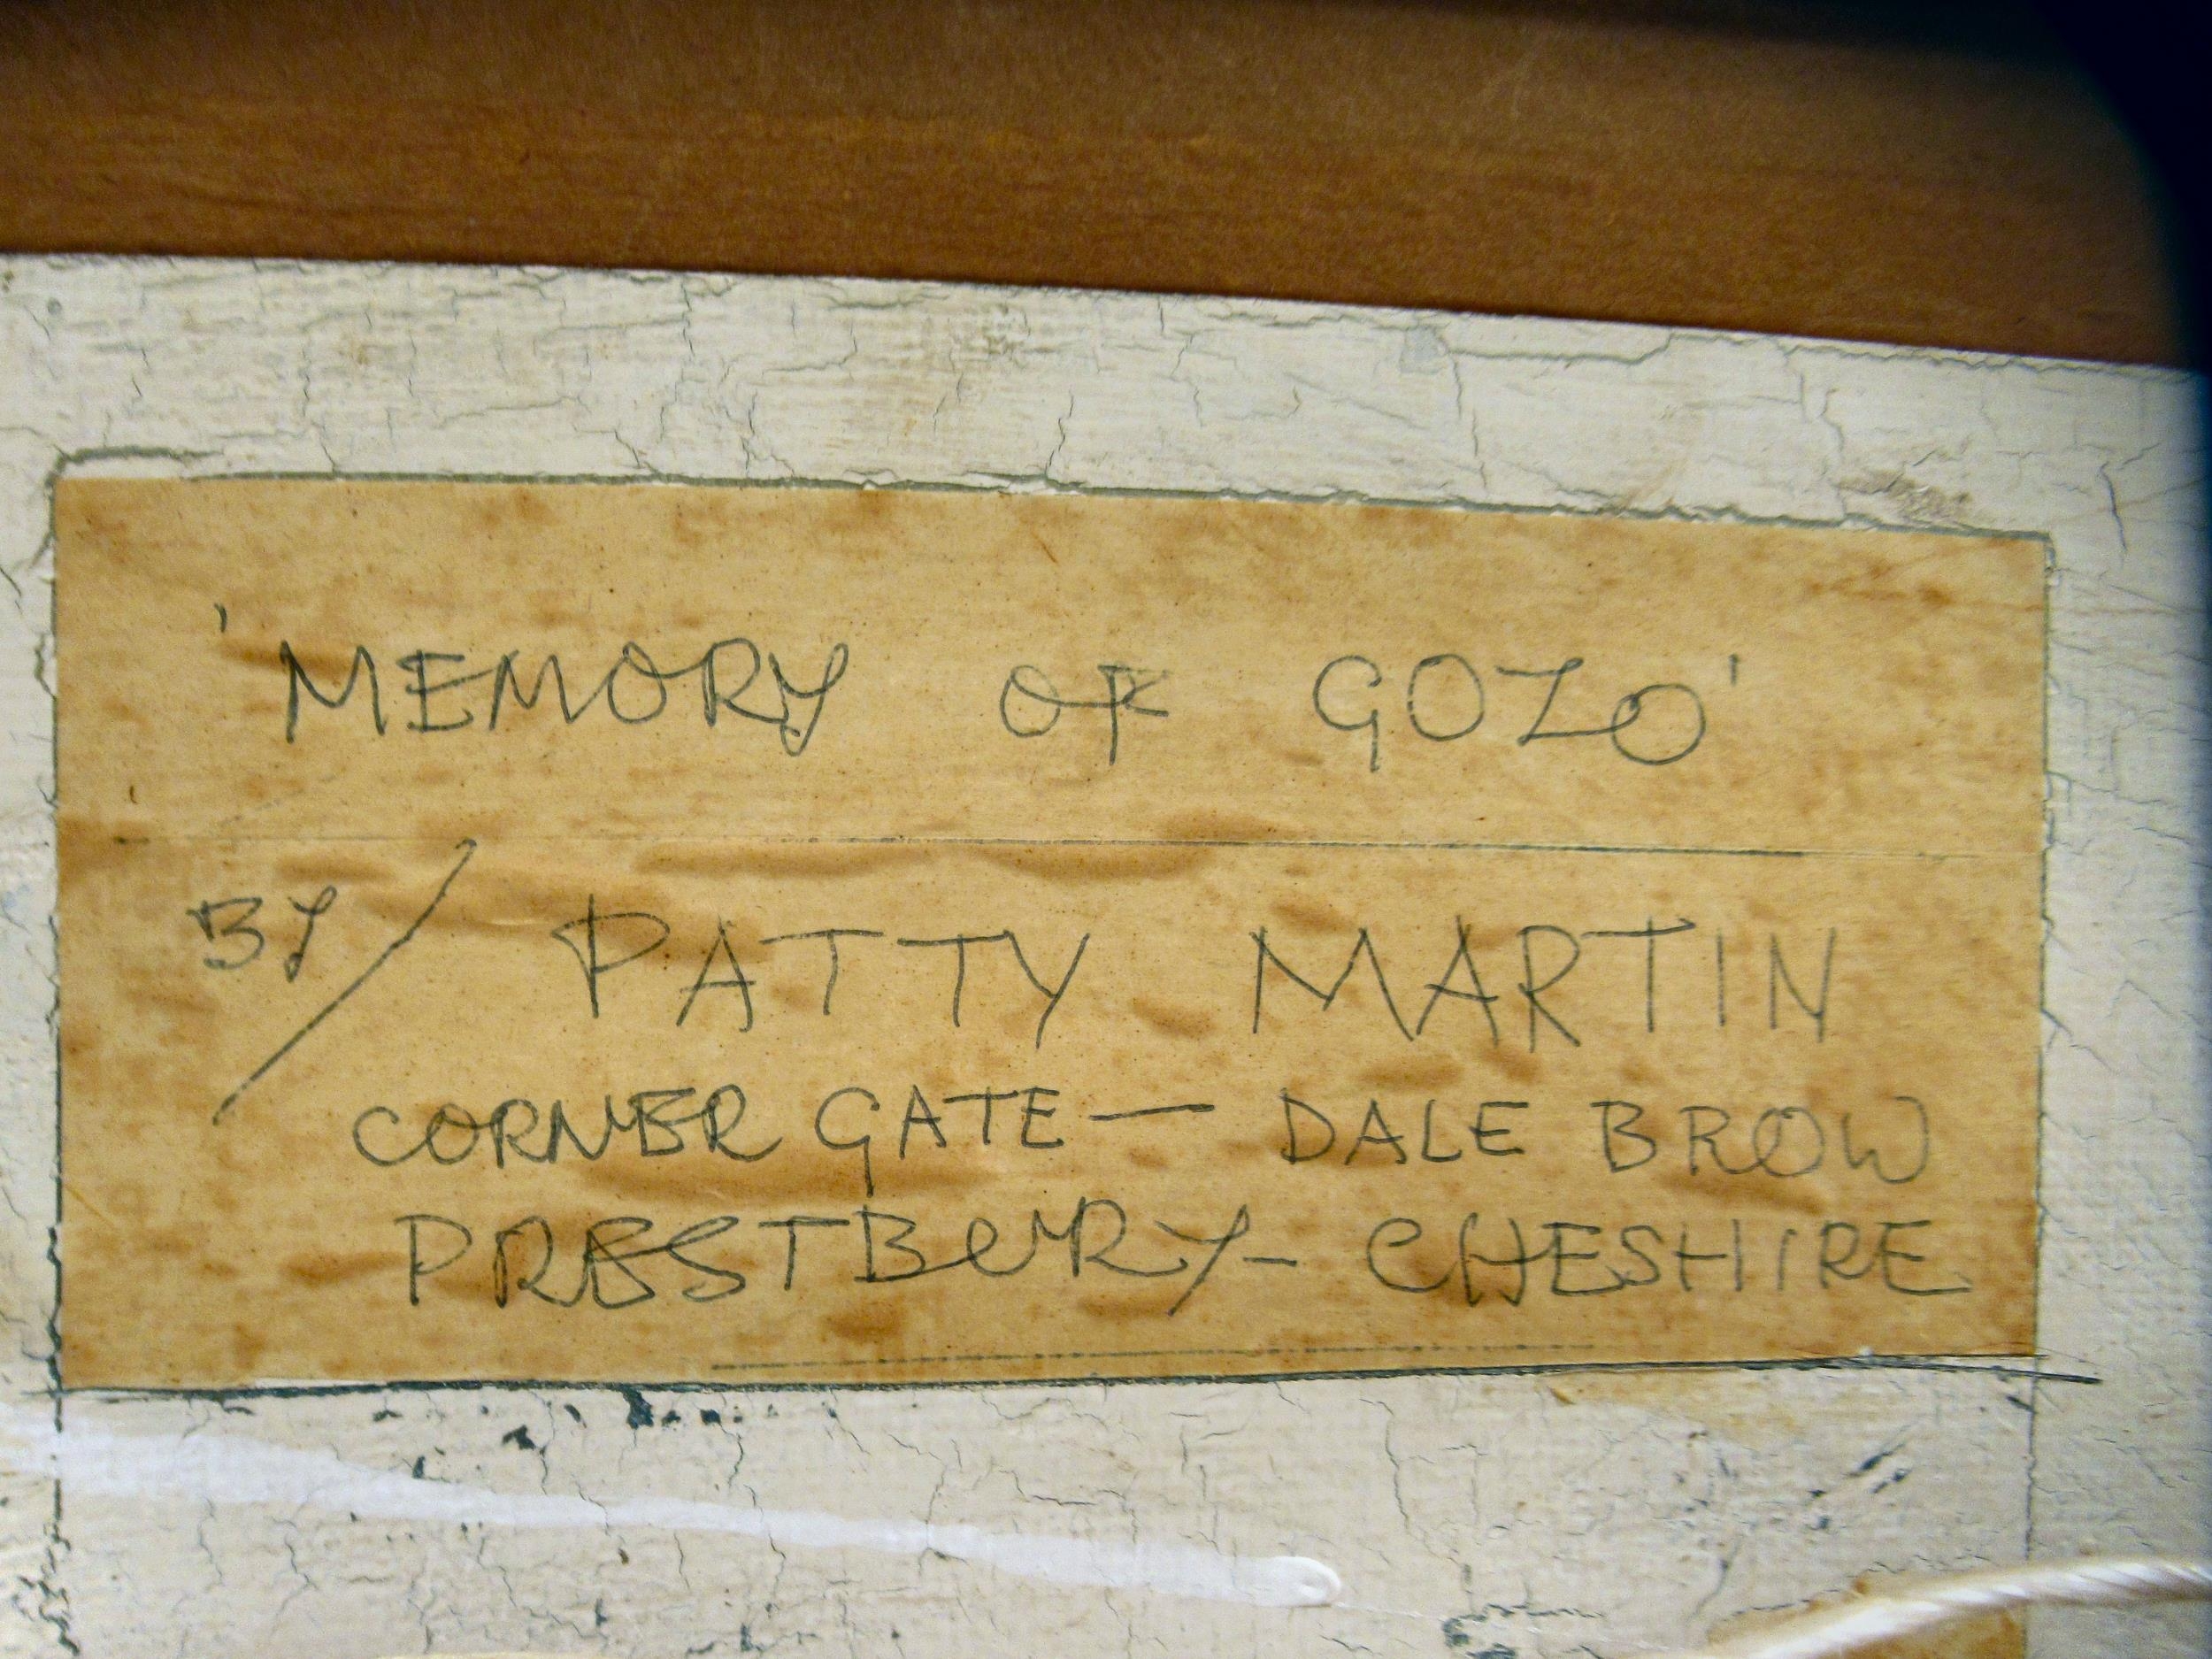 'MEMORY OF GOZO'
BY/ PATTY MARTIN
CORNER GATE — DALE BROW
PRESTBURY - CHESHIRE